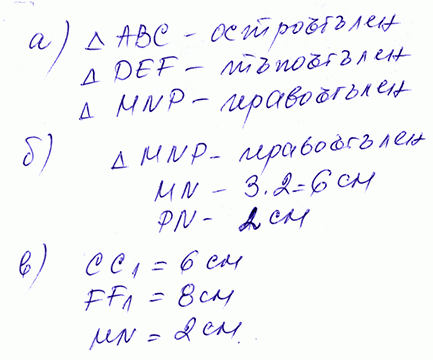 а) △ ABC – остроъгълен
△ DEF – тъпоъгълен
△ MNP – правоъгълен
б) △ MNP – правоъгълен
MN – 3.2=6 см
PN – 2 см
в) CC₁ = 6 см
FF₁ = 8 см
MN = 2 см.